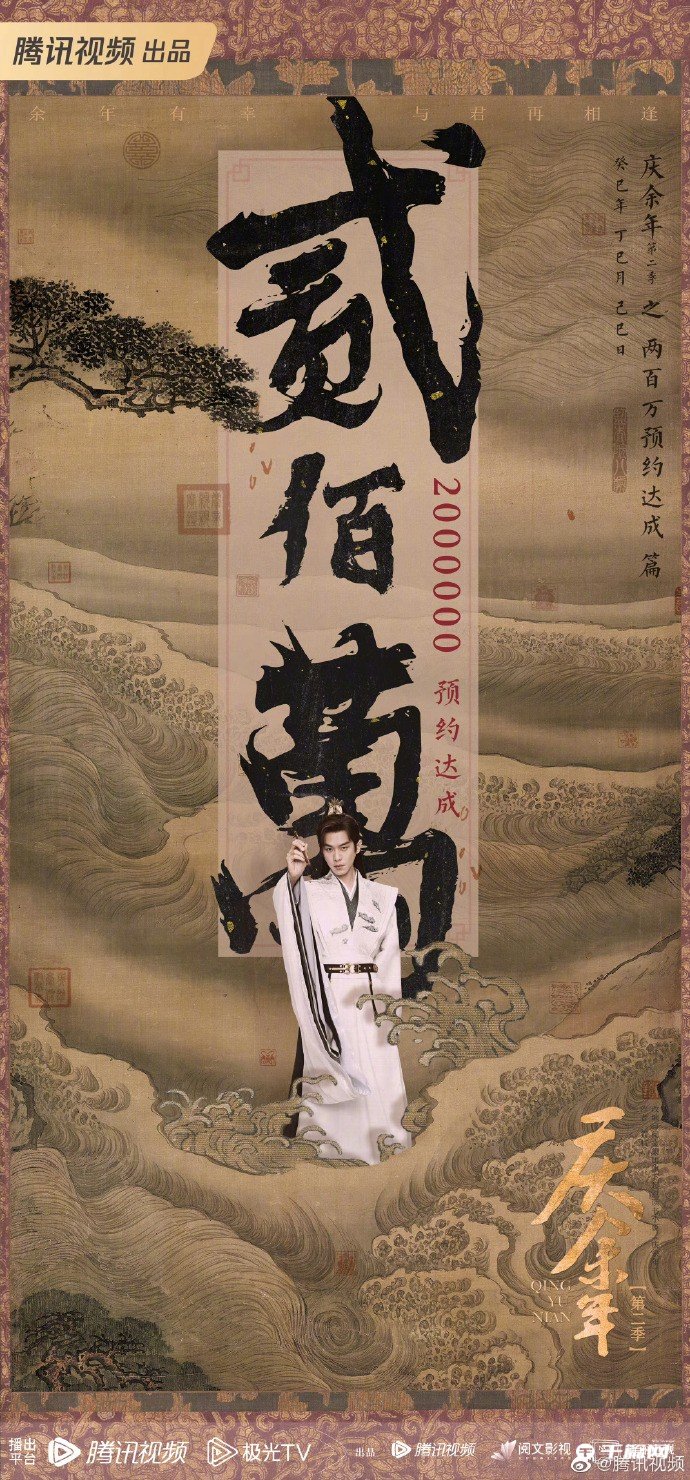 腾讯视频 出品
余年有幸 与君再相逢
庆余年第二季之两百万预约达成篇
癸巳年 丁巳月 己巳日
贰佰萬
2000000 预约达成
庆余年
QING
YU
NIAN
【第二季】
播出平台 腾讯视频 极光TV 出品 腾讯视频 阅文影视
@腾讯视频